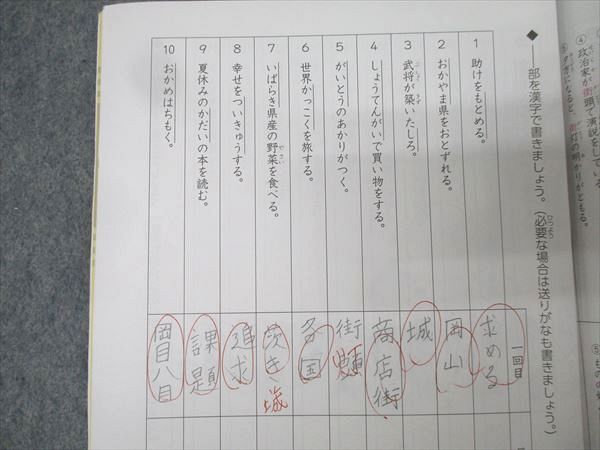 ④ 政治家が街頭で演説をしている
⑤ 夕方になると、街灯の明かりがともる。
◆――部を漢字で書きましょう。(必要な場合は送りがなも書きましょう。)
一回目
1 助けをもとめる。
求める
2 おかやま県をおとずれる。
岡山
3 武将が築いたしろ。
城
4 しょうてんがいで買い物をする。
商店街
5 がいとうのあかりがつく。
街
6 世界かっこくを旅する。
各国
7 いばらき県産の野菜を食べる。
茨き 城
8 幸せをついきゅうする。
追求
9 夏休みのかだいの本を読む。
課題
10 おかめはちもく。
岡目八目